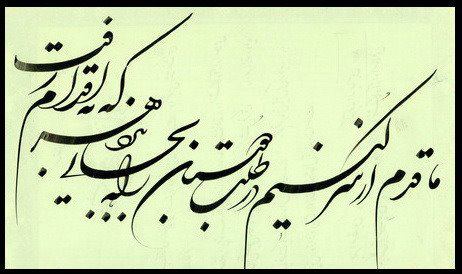 ما قدم از سر کنیم در طلب دوستان
راه بجایی نبرد هر که به اقدام رفت